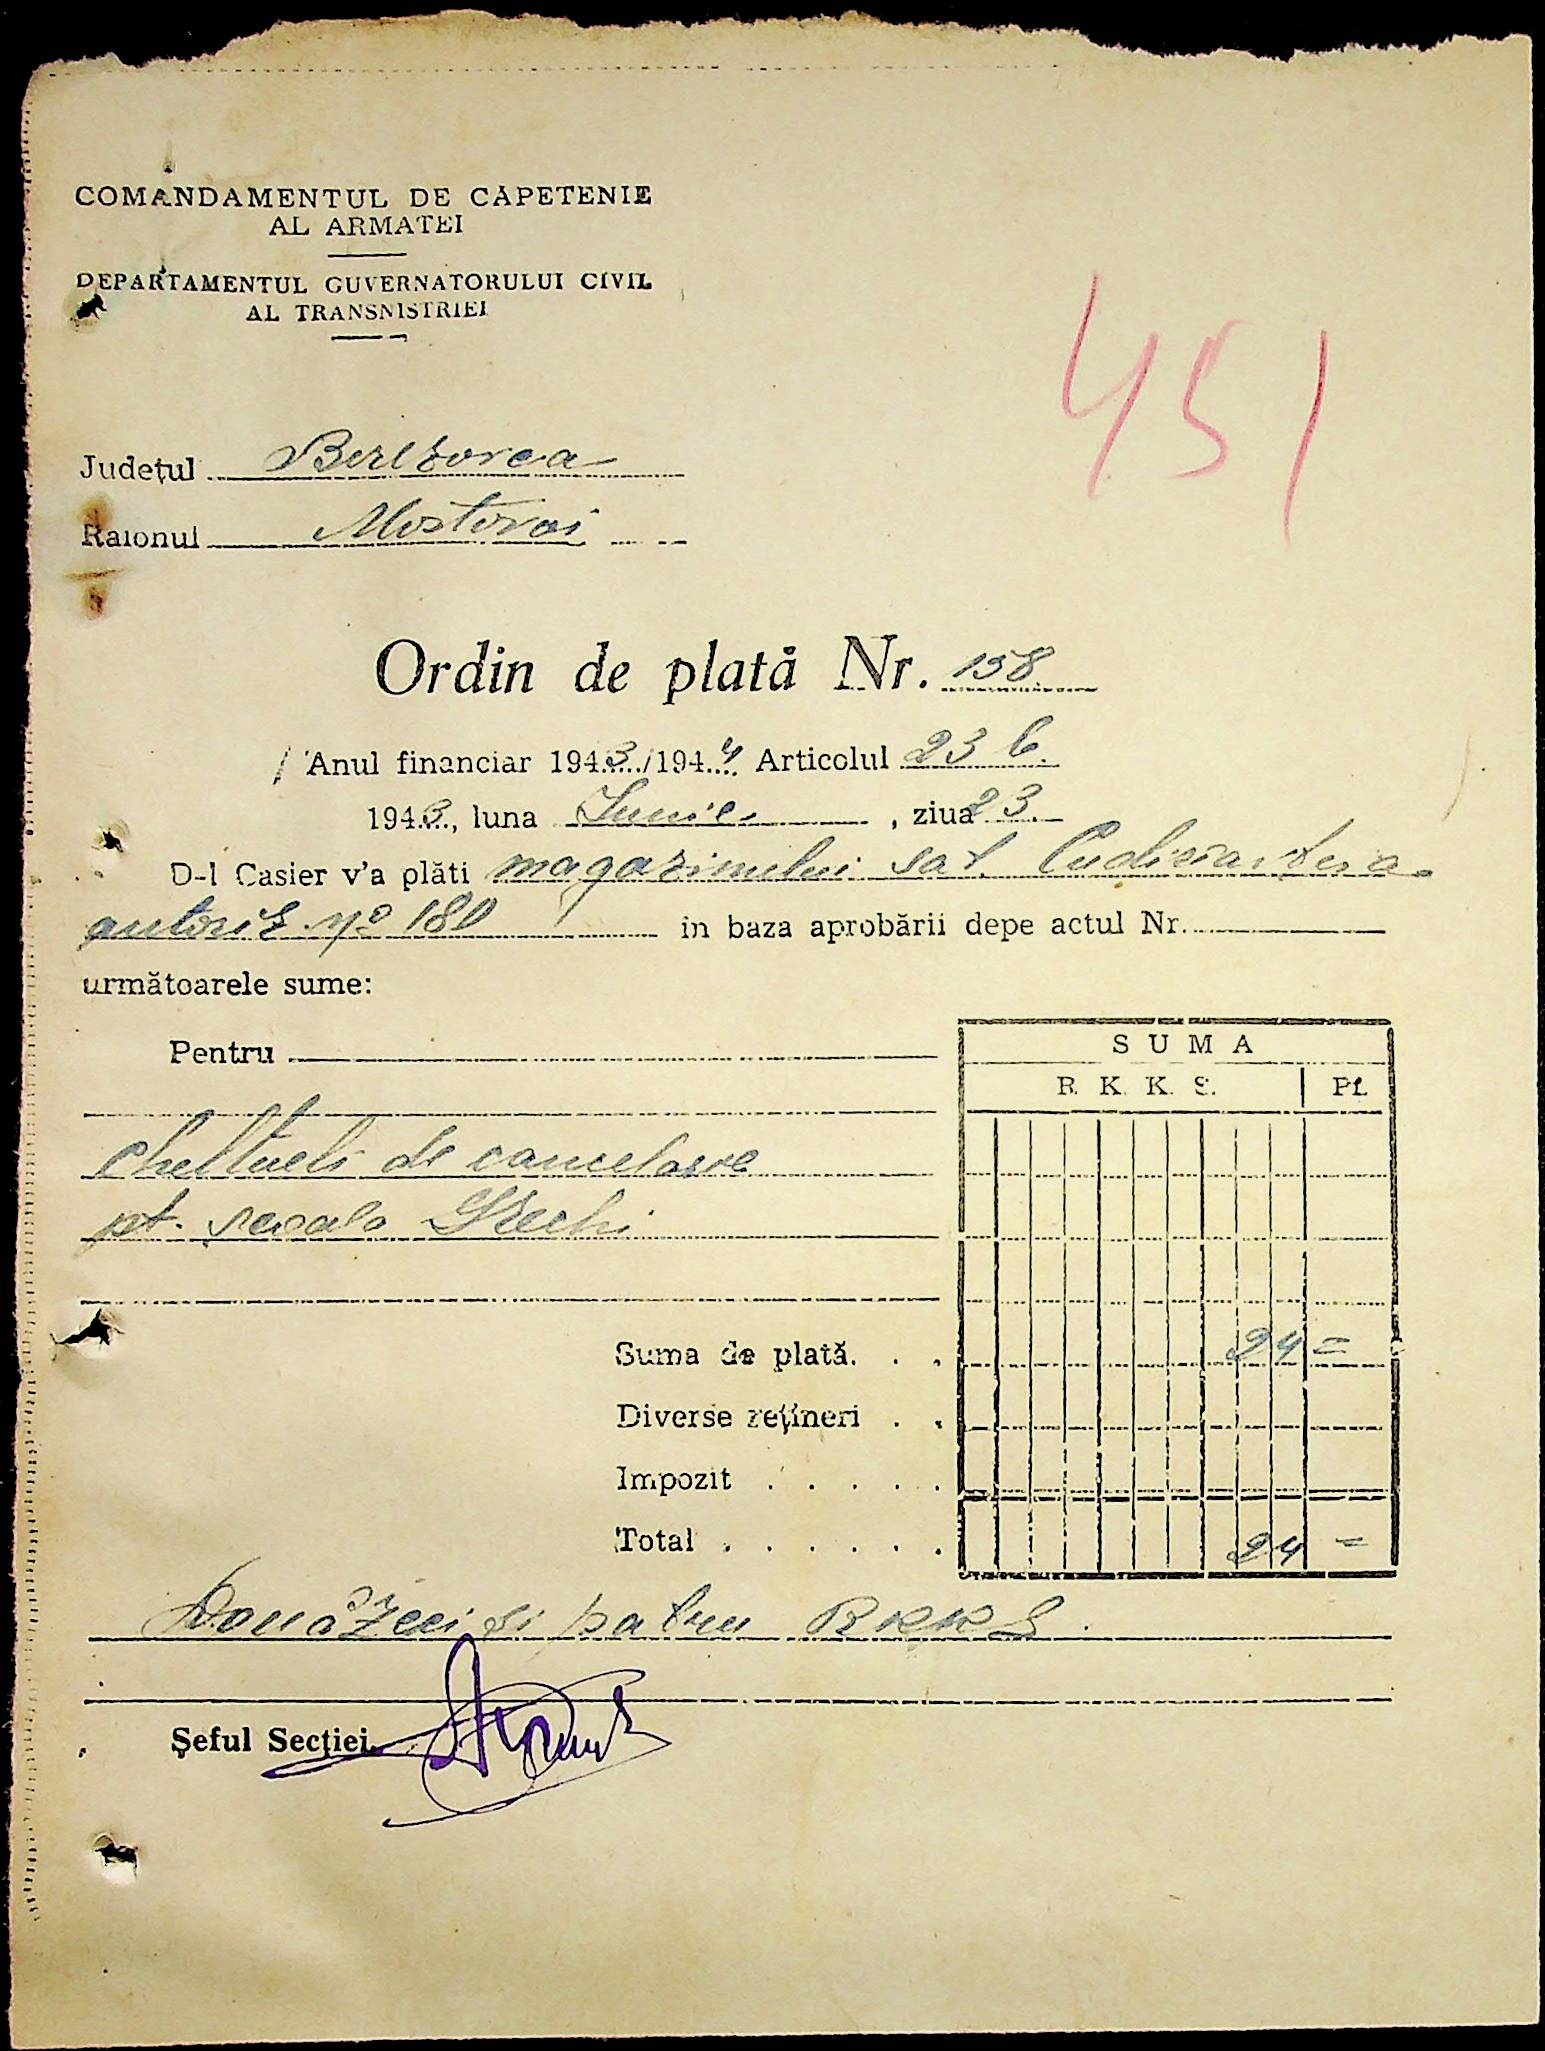 COMANDAMENTUL DE CAPETENIE
AL ARMATEI
DEPARTAMENTUL GUVERNATORULUI CIVIL
AL TRANSNISTRIEI
451
Județul Berezovca
Raionul Mostovoi
Ordin de plată Nr. 158
Anul financiar 1943/1944 Articolul 23 b.
1943, luna Iunie, ziua 23.
D-l Casier v'a plăti magazinului sat.
autoriz. No 180 in baza aprobării depe actul Nr.
următoarele sume:
Pentru
SUMA
R. K. K. S. Pf.
cheltueli de cancelarie
pt. școala
Suma de plată. . . 24 =
Diverse rețineri . .
Impozit . . . . .
Total . . . . . . 24 =
Douăzeci și patru RKKS.
Șeful Secției